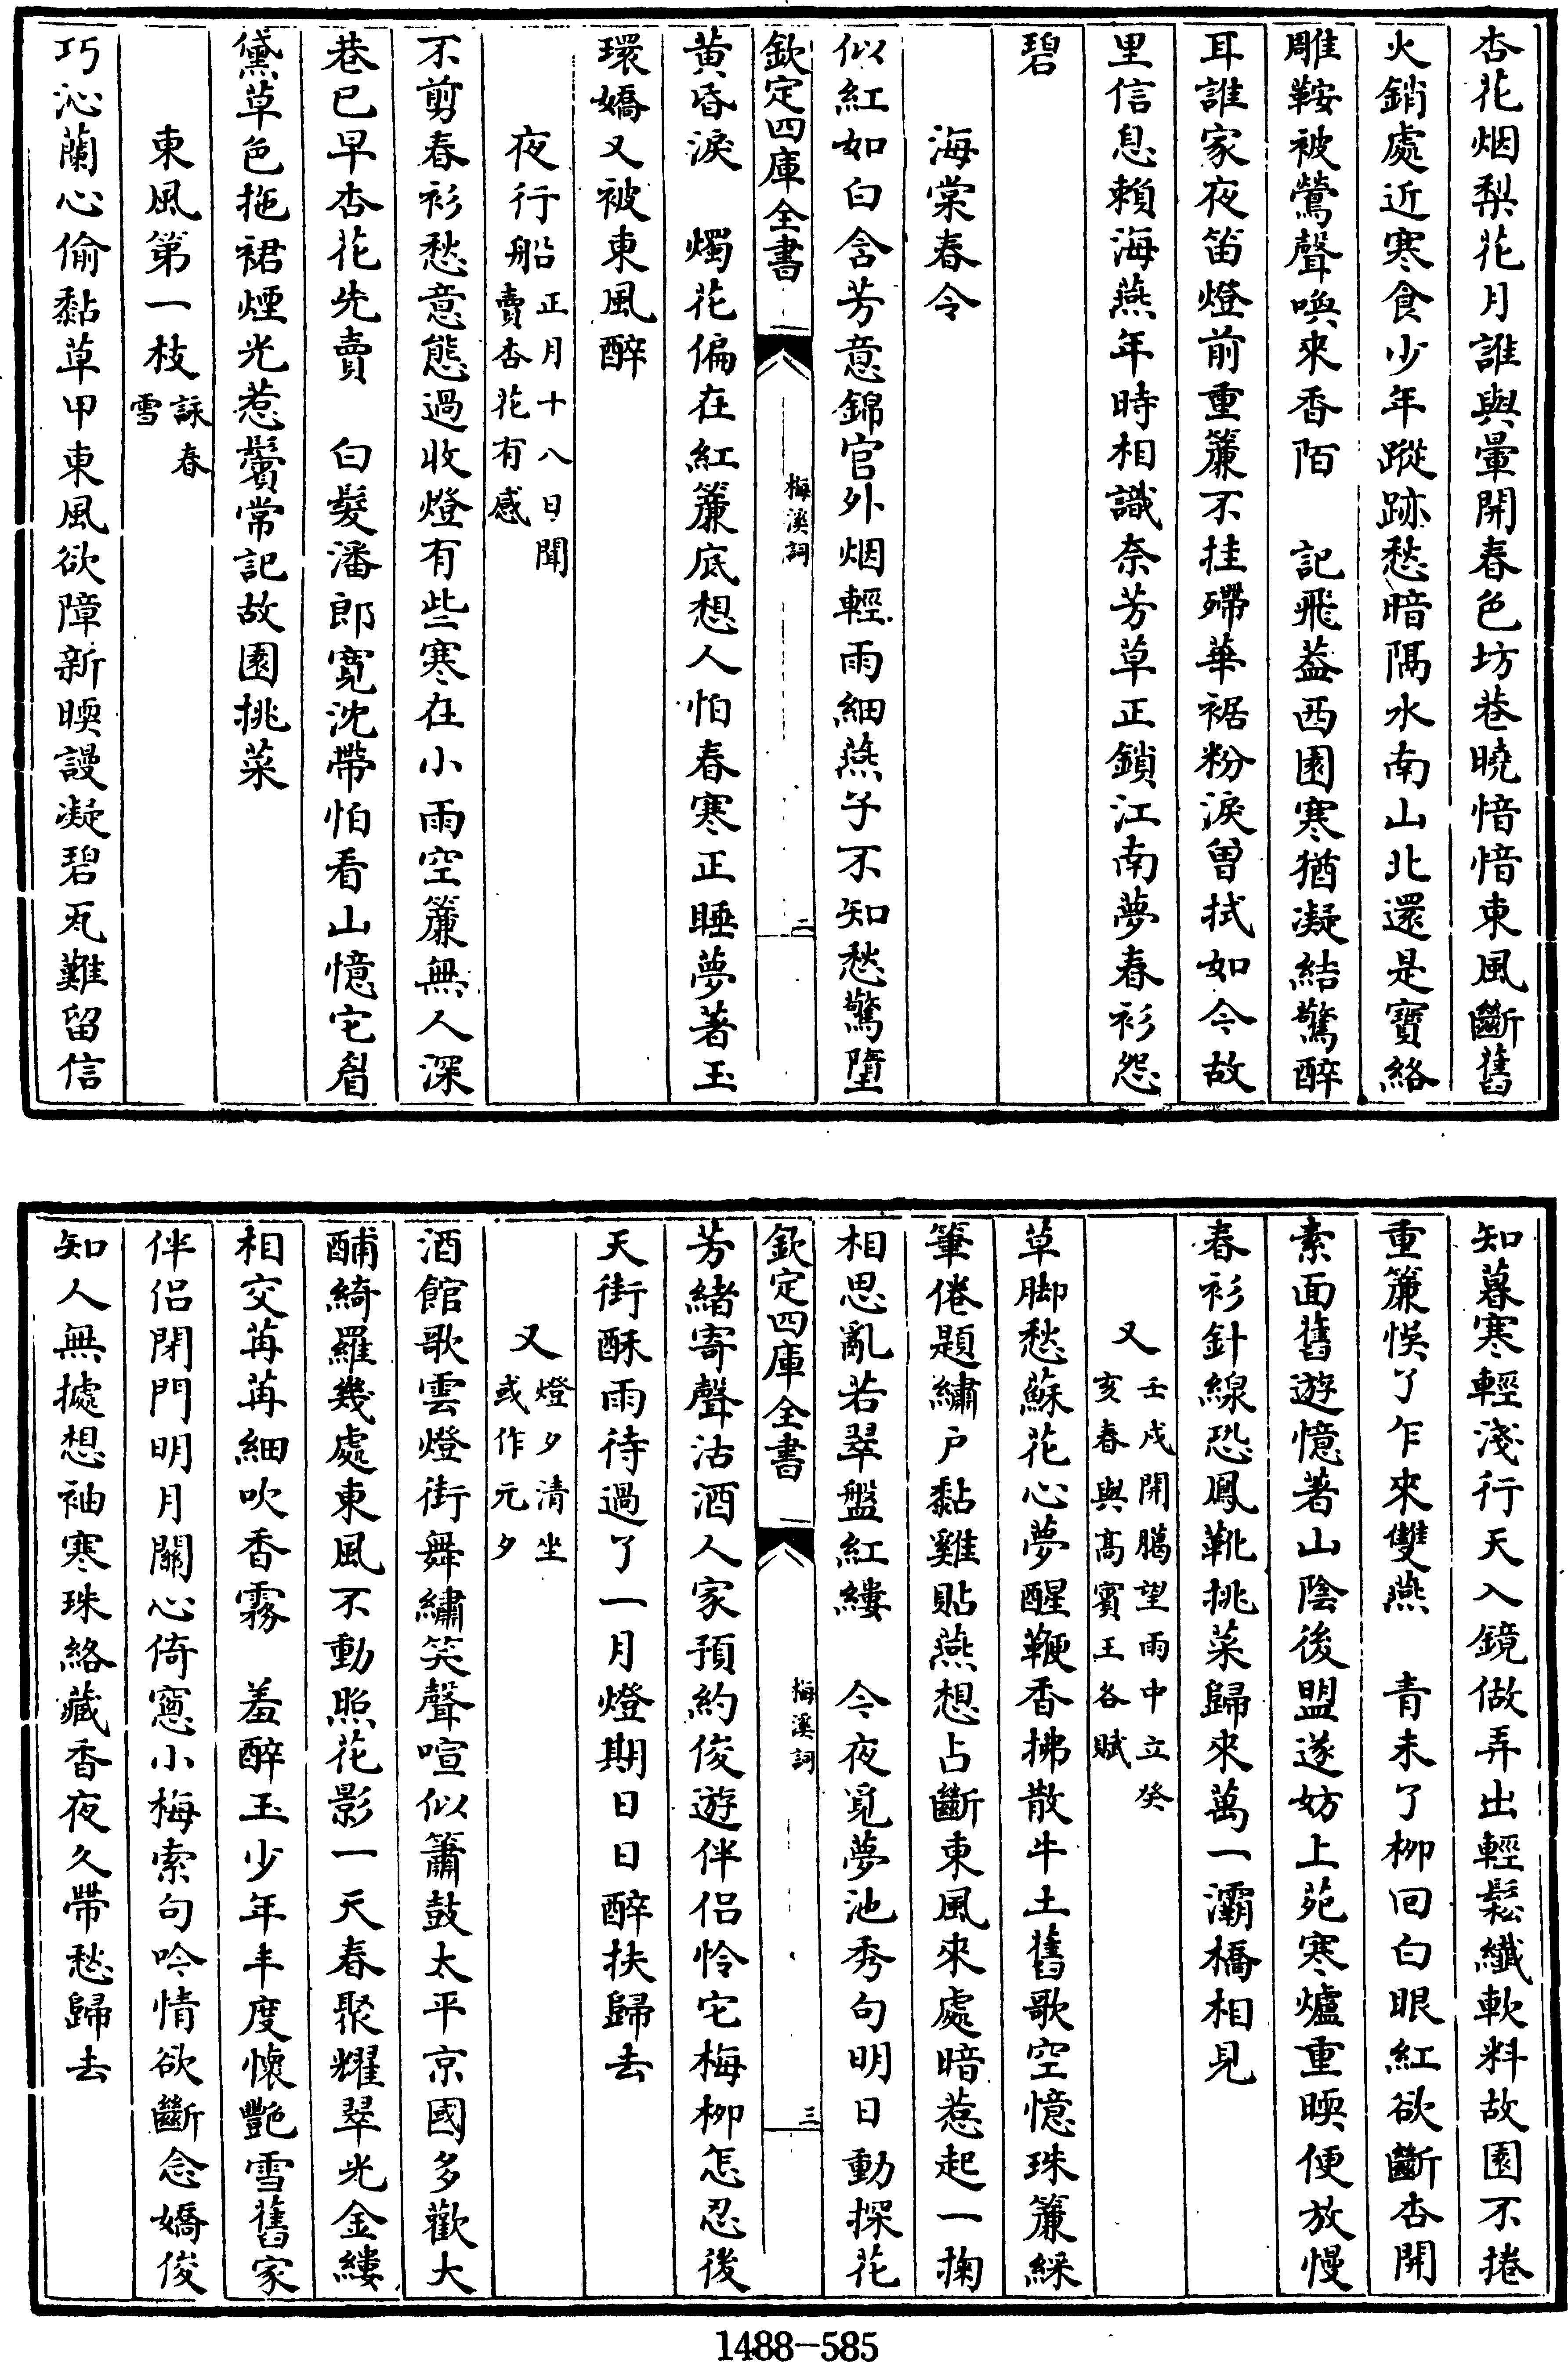 杏花烟梨花月誰與暈開春色坊巷曉愔愔東風斷舊
火銷處近寒食少年蹤跡愁暗隔水南山北還是寶絡
雕鞍被鶯聲喚來香陌　記飛葢西園寒猶凝結驚醉
耳誰家夜笛燈前重簾不挂殢華裾粉淚曾拭如今故
里信息賴海燕年時相識奈芳草正鎖江南夢春衫怨
碧
海棠春令
似紅如白含芳意錦官外烟輕雨細燕子不知愁驚墮
欽定四庫全書　梅溪詞　二
黄昏淚　燭花偏在紅簾底想人怕春寒正睡夢著玉
環嬌又被東風醉
夜行船正月十八日聞賣杏花有感
不剪春衫愁意態過收燈有些寒在小雨空簾無人深
巷已早杏花先賣　白髮潘郎寬沈帶怕看山憶它眉
黛草色拖裙煙光惹鬢常記故園挑菜
東風第一枝詠春雪
巧沁蘭心偷黏草甲東風欲障新暎謾凝碧瓦難留信
知暮寒輕淺行天入鏡做弄出輕鬆纖軟料故園不捲
重簾悞了乍來雙燕　青未了柳回白眼紅欲斷杏開
素面舊遊憶著山陰後盟遂妨上苑寒爐重暎便放慢
春衫針線恐鳳靴挑菜歸來萬一灞橋相見
又壬戌開臈望雨中立癸亥春與髙賓王各賦
草脚愁蘇花心夢醒鞭香拂散牛土舊歌空憶珠簾綵
筆倦題繡户黏雞貼燕想占斷東風來處暗惹起一掬
相思亂若翠盤紅縷　今夜覓夢池秀句明日動探花
欽定四庫全書　梅溪詞　三
芳緒寄聲沽酒人家預約俊遊伴侣怜它梅柳怎忍後
天街酥雨待過了一月燈期日日醉扶歸去
又燈夕清坐或作元夕
酒館歌雲燈街舞繡笑聲喧似簫鼓太平京國多歡大
酺綺羅幾處東風不動照花影一天春聚耀翠光金縷
相交苒苒細吹香霧　羞醉玉少年丰度懷艶雪舊家
伴侣閉門明月關心倚窻小梅索句吟情欲斷念嬌俊
知人無據想袖寒珠絡藏香夜久帶愁歸去
1488—585